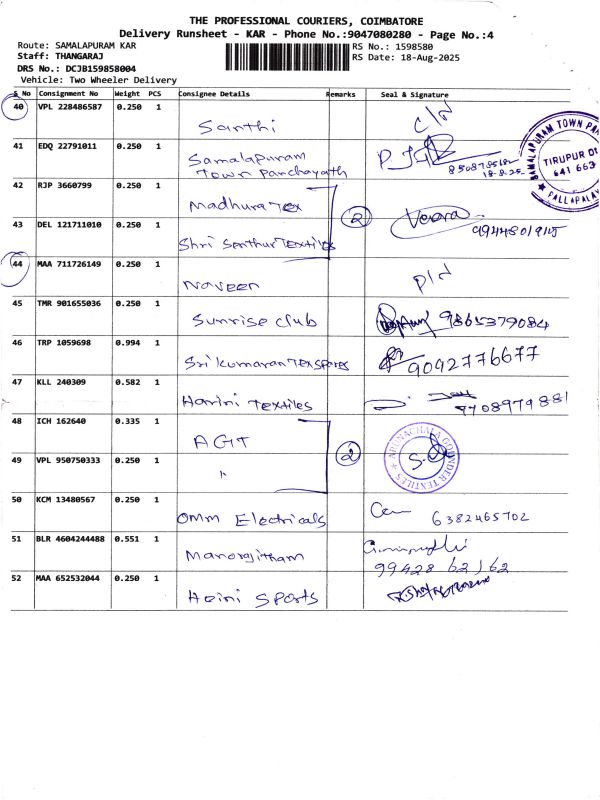 THE PROFESSIONAL COURIERS, COIMBATORE
Delivery Runsheet - KAR - Phone No.:9047080280 - Page No.:4
Route: SAMALAPURAM KAR RS No.: 1598580
Staff: THANGARAJ RS Date: 18-Aug-2025
DRS No.: DCJB159858004
Vehicle: Two Wheeler Delivery
S No Consignment No Weight PCS Consignee Details Remarks Seal & Signature
40 VPL 228486587 0.250 1 Santhi
41 EDQ 22791011 0.250 1 Samalapuram
Town Panchayath
18.8.25
SAMALAPURAM TOWN PAN
TIRUPUR D
641 663
PALLAPALAY
42 RJP 3660799 0.250 1 Madhura Tex
2
43 DEL 121711010 0.250 1 Shri Santhur Textiles
44 MAA 711726149 0.250 1 Naveen
45 TMR 901655036 0.250 1 Sunrise club 9865379084
46 TRP 1059698 0.994 1 Sri kumaran Texspares 9092776677
47 KLL 240309 0.582 1 Harini Textiles 9708979881
48 ICH 162640 0.335 1 AGT
2
ARUNACHALA GOUNDER TEXTILES
49 VPL 950750333 0.250 1 "
50 KCM 13480567 0.250 1 Omm Electricals 6382465702
51 BLR 4604244488 0.551 1 Manorajitham
99428 62162
52 MAA 652532044 0.250 1 Heini Sports